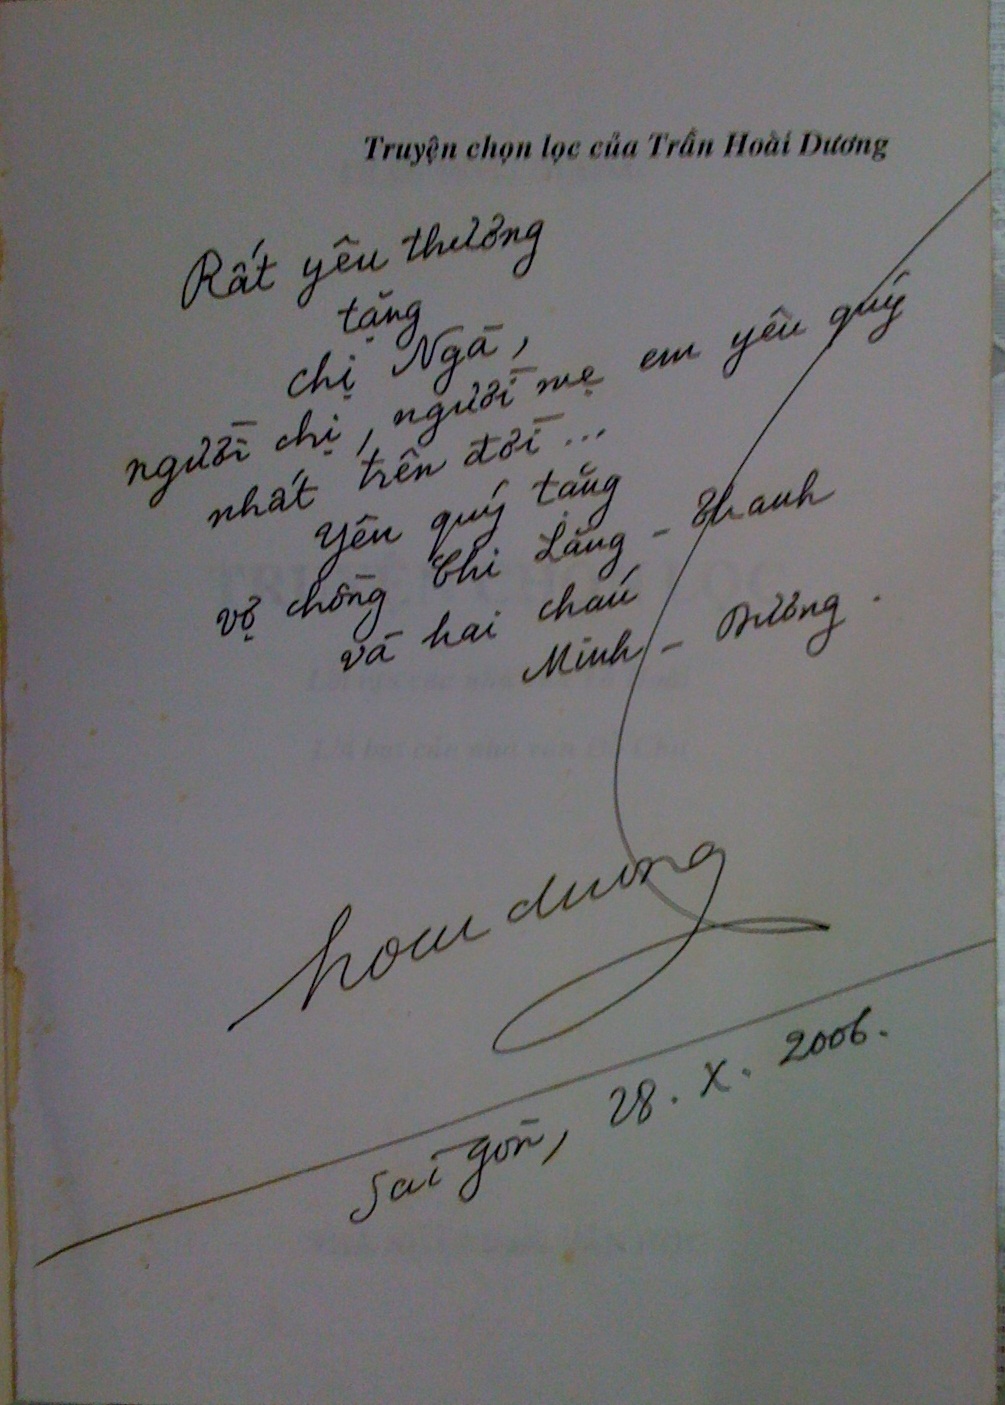 Truyện chọn lọc của Trần Hoài Dương
Rất yêu thương
tặng
chị Ngà,
người chị, người mẹ em yêu quý
nhất trên đời...
Yêu quý tặng
vợ chồng Chi Lăng - Thanh
và hai cháu
Minh - Dương.
hoài dương
Sài gòn, 28. X. 2006.